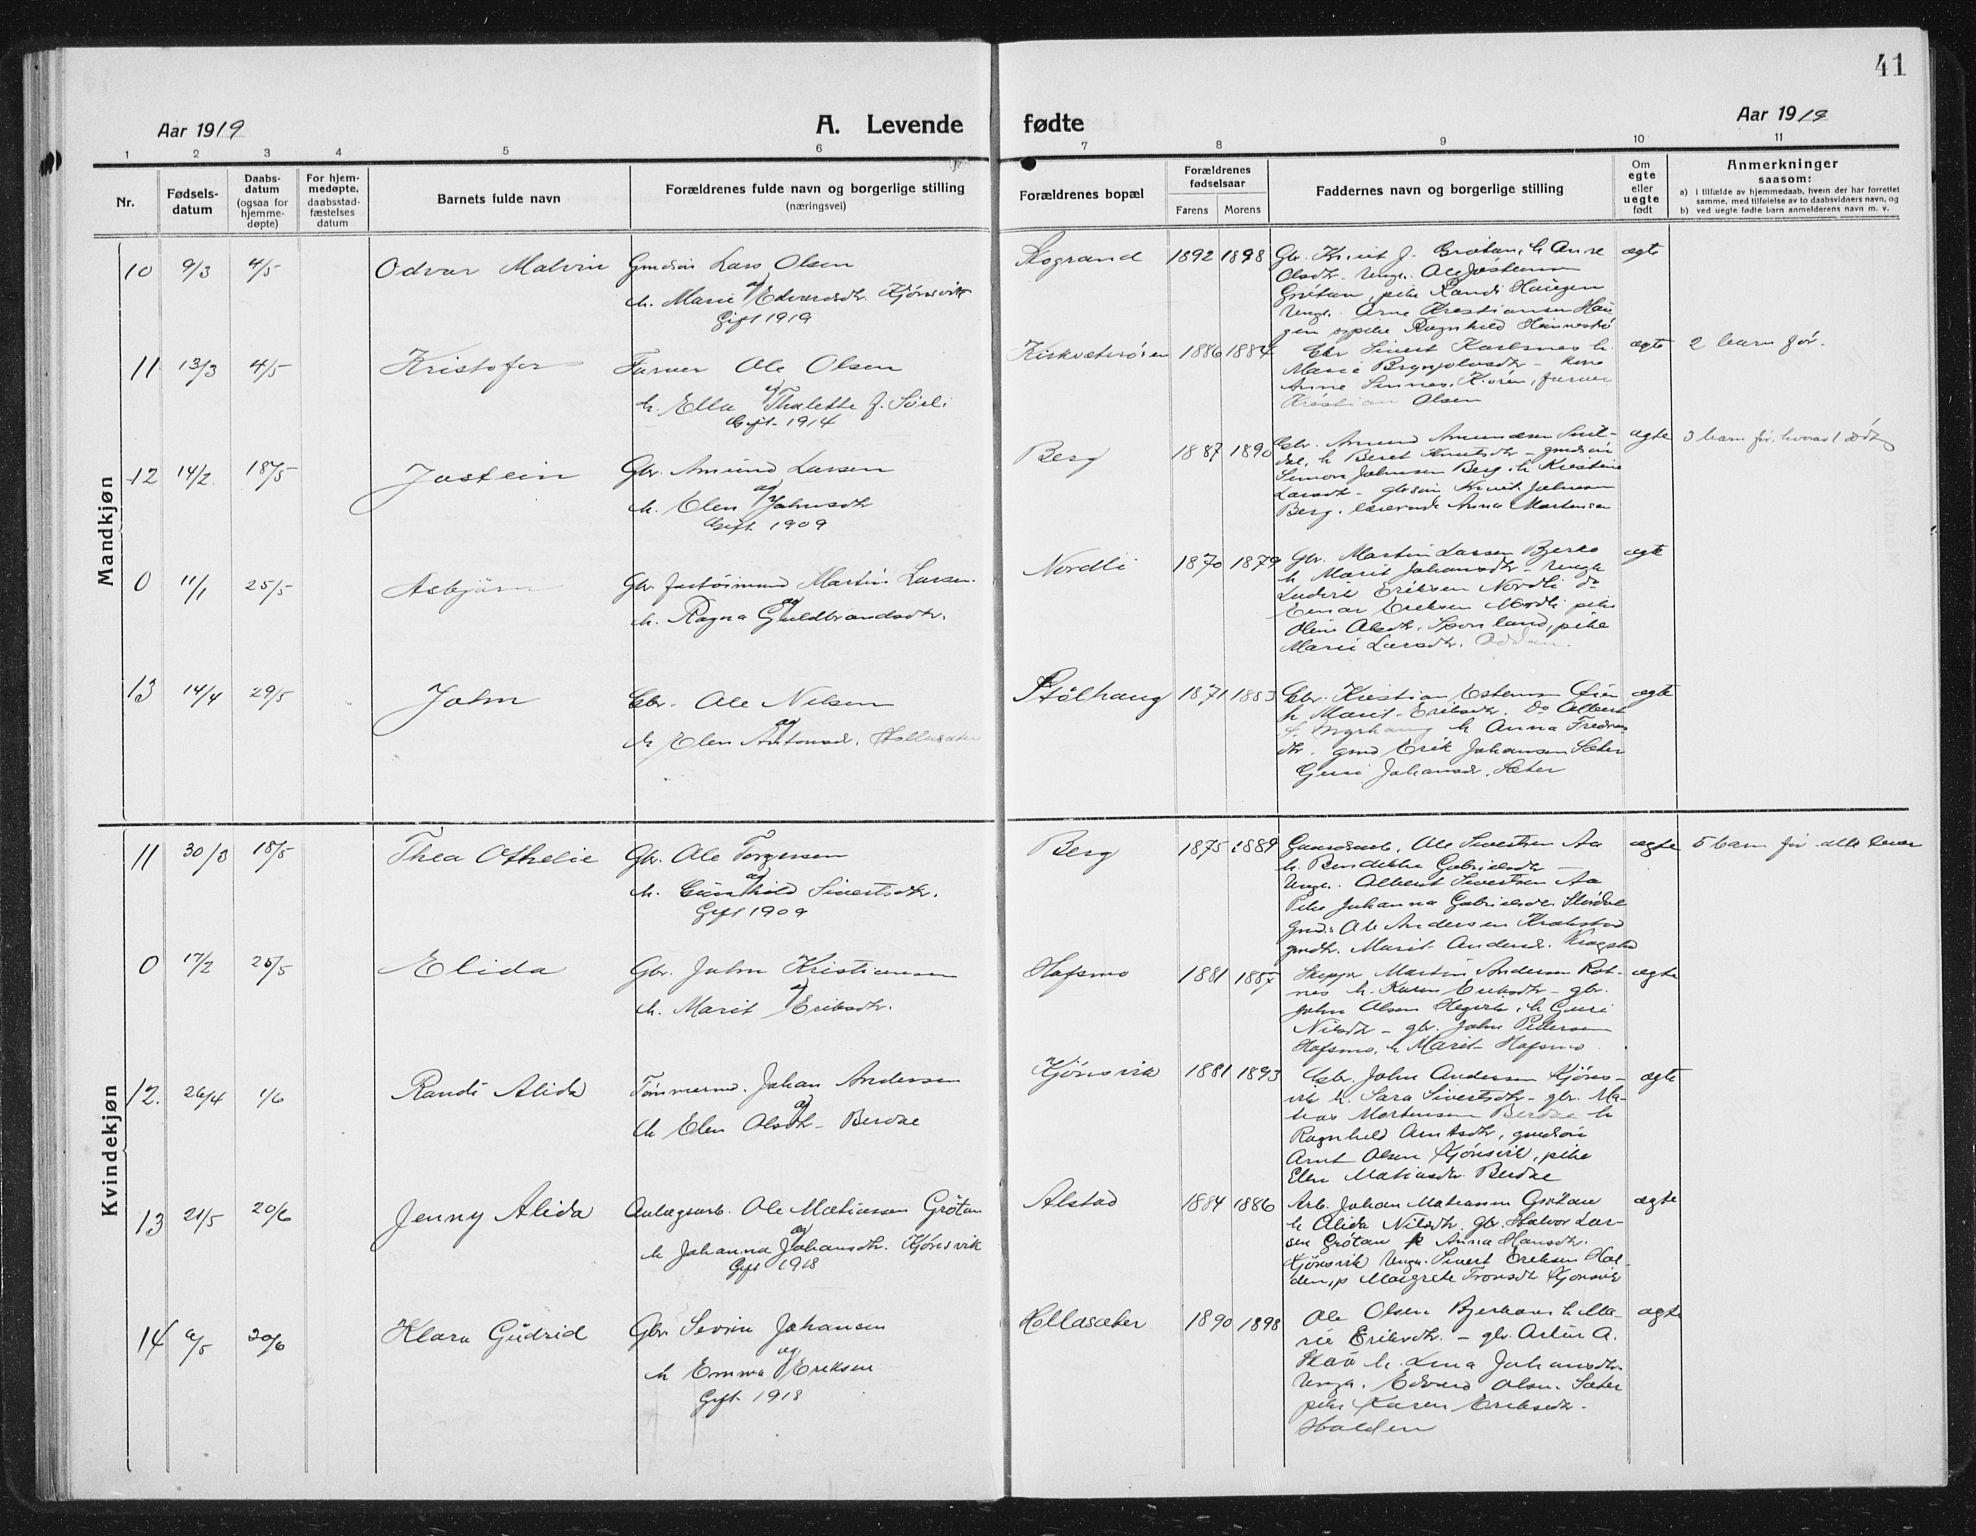 41
Aar 1919
A. Levende fødte
Aar 1919
1 2 3 4 5 6 7 8 9 10 11
Nr.
Fødsels-
datum
Daabs-
datum
(ogsaa for
hjemme-
døpte)
For hjem-
medøpte,
daabsstad-
fæstelses
datum
Barnets fulde navn
Forældrenes fulde navn og borgerlige stilling
(næringsvei)
Forældrenes bopæl
Forældrenes
fødselsaar
Farens Morens
Faddernes navn og borgerlige stilling
Om
egte
eller
uegte
født
Anmerkninger
saasom:
a) I tilfælde av hjemmedaab, hvem der har forrettet
samme, med tilføielse av to daabsvidners navn, og
b) ved uegte fødte barn anmelderens navn m. v.
Mandkjøn
10 9/3 4/5 Odvar Malvin
Gmdsøn Lars Olsen
og
h. Marie Edvardsdtr. Kjønsvik
Gift 1919
Skogrand 1892 1898
Gbr. Knut J. Grøtan, h. Anne
Olsdtr. Ungk. Ole Jostensen
Grøtan, pike Randi Haugen
Ungk. Arne Kristiansen Hau
gen og pike Ragnhild
ægte
11 13/3 4/5 Kristofer
Farver Ole Olsen
og
h. Ella Thalette f. Sørli
Gift 1914
Kirksæterøren 1886 1884
Gbr Sivert Karlsnes h.
Marie Brynjolvsdtr - kone
Anne Sinnes, K.øren, farver
Kristian Olsen
ægte 2 barn før.
12 14/2 18/5 Jostein
Gbr. Amund Larsen
og
h. Elen Johnsdtr
Gift 1909
Berg 1887 1890
Gbr. Amund Amundsen Snil-
dal, h. Beret Knutsdtr - gmdsøn
Simon Johnsen Berg, h. Kristine
Larsdtr - gbrsøn Knut Johnsen
Berg, lærerinde Anna Mortensen
ægte 3 barn før. hvorav 1 død
0 11/1 25/5 Asbjørn
Gbr. Martin Larsen.
og
h. Ragna Guldbrandsdtr.
Nordli 1870 1879
Gbr. Martin Larsen
h. Marit Johansdtr - Ungk
Ludvik Eriksen Nordli do
Einar Eriksen Nordli pike
Oline Olsdtr. pike
Marie Larsdtr.
ægte
13 14/4 29/5 John
Gbr. Ole Nilsen
og
h Elen Antonsd. Hollasæter
Stølhaug 1871 1883
Gbr. Kristian Estensen
h. Marit Eriksdtr. Do Albert
h Anna
dtr. gmd Erik Johansen Sæter
Guri Johansdr. Sæter
ægte
Kvindekjøn
11 30/3 18/5 Thea Othelie
Gbr. Ole Torgersen
og
h. Gunhild Sivertsdtr.
Gift 1909
Berg 1875 1889
Ole Sivertsen Aa
h. Bendikke Gabrielsdtr -
Ungk. Albert Sivertsen Aa
Pike Johanna Gabrielsdr.
gmds. Ole Andersen Krokstad
gmdtr. Marit Andersd.
ægte 5 barn før alle lever
0 17/2 25/5 Elida
Gbr. John Kristiansen
og
h. Marit Eriksdtr.
Hafsmo 1881 1887
Skipper Martin Andersen Rot-
nes h. Karen Eriksdtr - gbr.
John Olsen h Guri
Nilsdtr - gbr. John Pettersen
Hafsmo, h Marit Hafsmo.
ægte
12. 26/4 1/6 Randi Alida
Tømmermd. Johan Andersen
og
h Elen Olsdtr - Berdze
Kjønsvik 1881 1893
Gbr. John Andersen Kjøns-
vik h. Sara Sivertsdtr - gbr. Ma-
tias Mortensen h
Ragnhild Arntsdtr, gmdsøn
Arnt Olsen Kjønsvik, pike
Elen Matiasdr.
ægte
13 21/5 20/6 Jenny Alida
Anlægsarb. Ole Matiassen Grøtan
og
h Johanna Johansdtr. Kjønsvik
Gift 1918
Alstad 1884 1886
Arb. Johan Matiassen Grøtan
h Alida Nilsdtr. gbr. Halvor Lar-
sen Grøtan p Anna Hansdtr.
Kjønsvik Ungk. Sivert Eriksen Hal-
den, p Margrete Tronsdtr Kjønsvik
ægte
14 6/5 20/6 Klara Gudrid
Gbr Sevrin Johansen
og
h Emma Eriksen
Gift 1918
Hollasæter 1890 1898
Ole Olsen h Ma-
rie Eriksdtr. - gbr. Artur A.
h. Lina Johansdtr.
Ungk. Edvard Olsen. Sæter
pike Karen Eriksdtr.
Halden
ægte